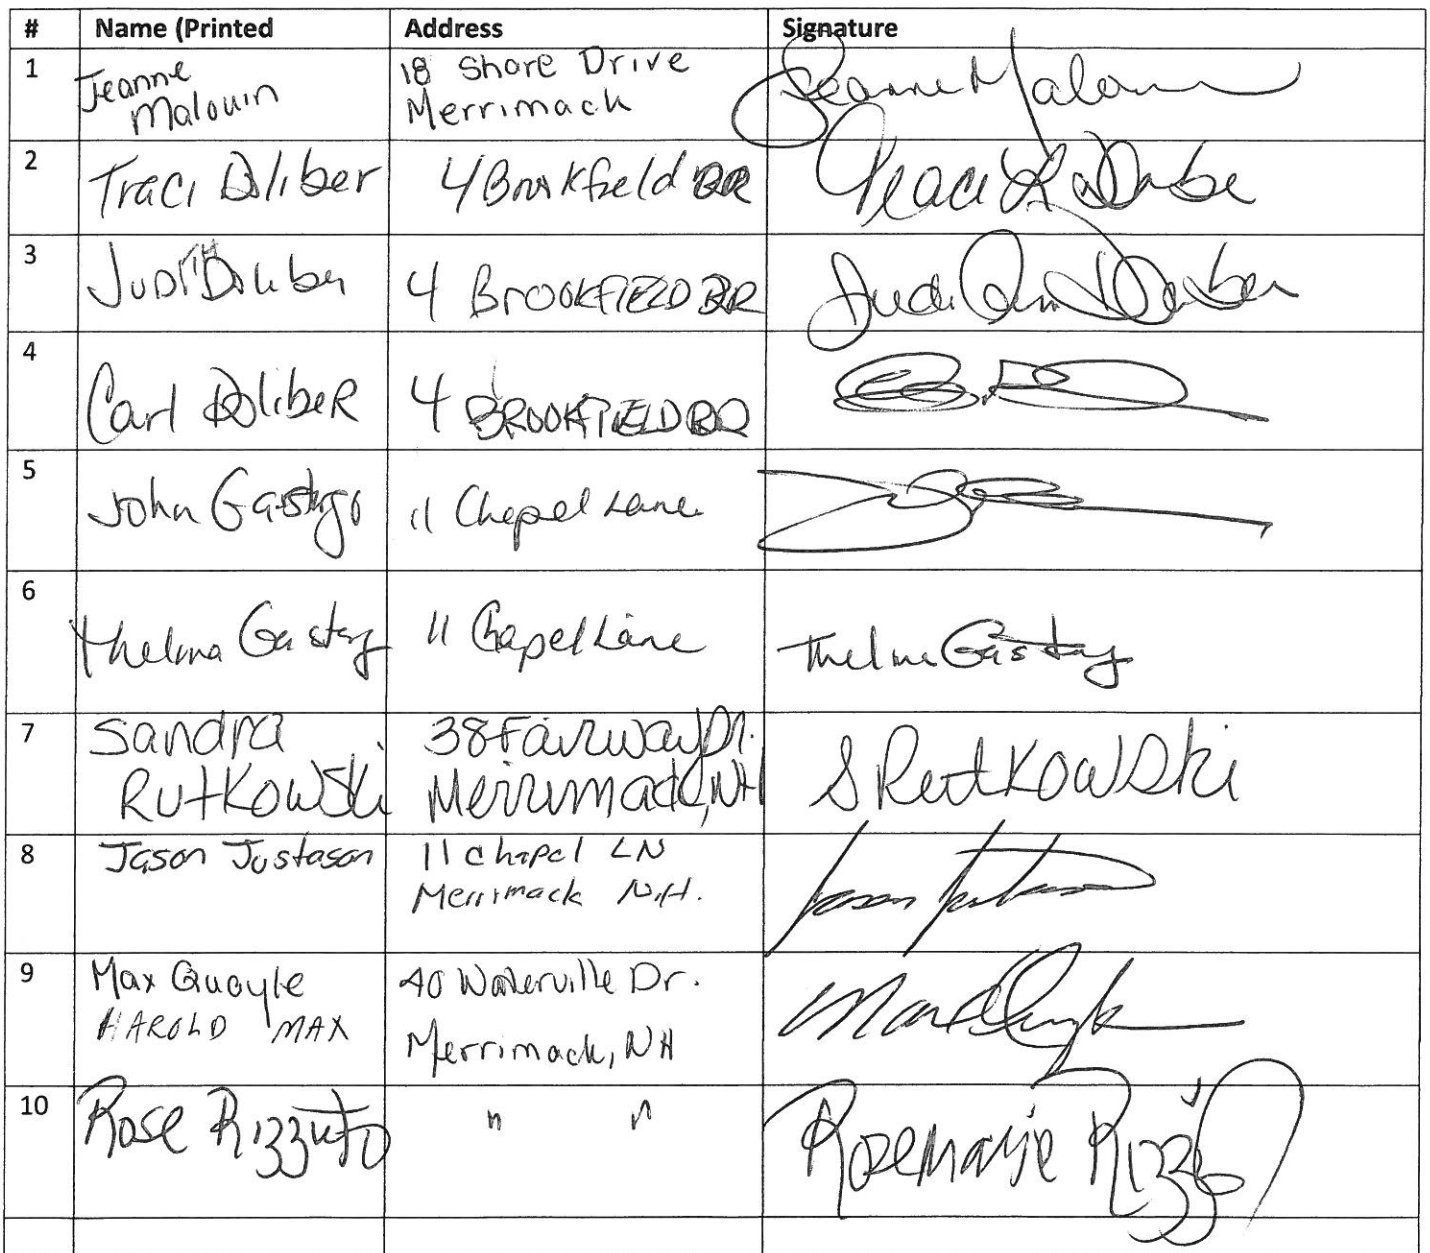 # Name (Printed Address Signature
1 Jeanne Malouin 18 Shore Drive Merrimack Jeanne Malouin
2 Traci Doliber 4 Brookfield DR Traci
3 Judith Doliber 4 BROOKFIELD DR Judi Ann Doliber
4 Carl Doliber 4 BROOKFIELD DR
5 John 11 Chapel Lane
6 Thelma Gastay 11 Chapel Lane Thelma Gastay
7 Sandra Rutkowski 38 Fairway Dr. Merrimack, NH S Rutkowski
8 Jason Justason 11 Chapel LN Merrimack N.H. Jason Justason
9 Max Quayle HAROLD MAX 40 Waterville Dr. Merrimack, NH Max Quayle
10 Rose Rizzuto " " Rosemarie Rizzuto